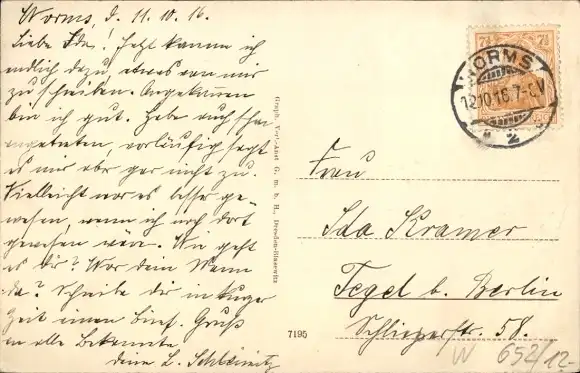 Worms, d. 11.10.16.
Liebe Ida! Jetzt komme ich
endlich dazu, etwas von mir
zu schreiben. Angekommen
bin ich gut. Habe auch schon
angetreten, vorläufig sagt
es mir aber gar nicht zu.
Vielleicht wär es besser ge-
wesen, wenn ich noch dort
gewesen wäre. Wie geht
es dir? War dein Mann
da? Schreibe dir in kurzer
Zeit einen Brief. Gruß
an alle Bekannte.
deine L.
Graph. Verl.-Anst. G. m. b. H., Dresden-Blasewitz
7195
7½
WORMS
12.10.16.7-8V
2
Frau
Ida Kramer
Tegel b. Berlin
Schlieperstr. 58.
W 652/12-